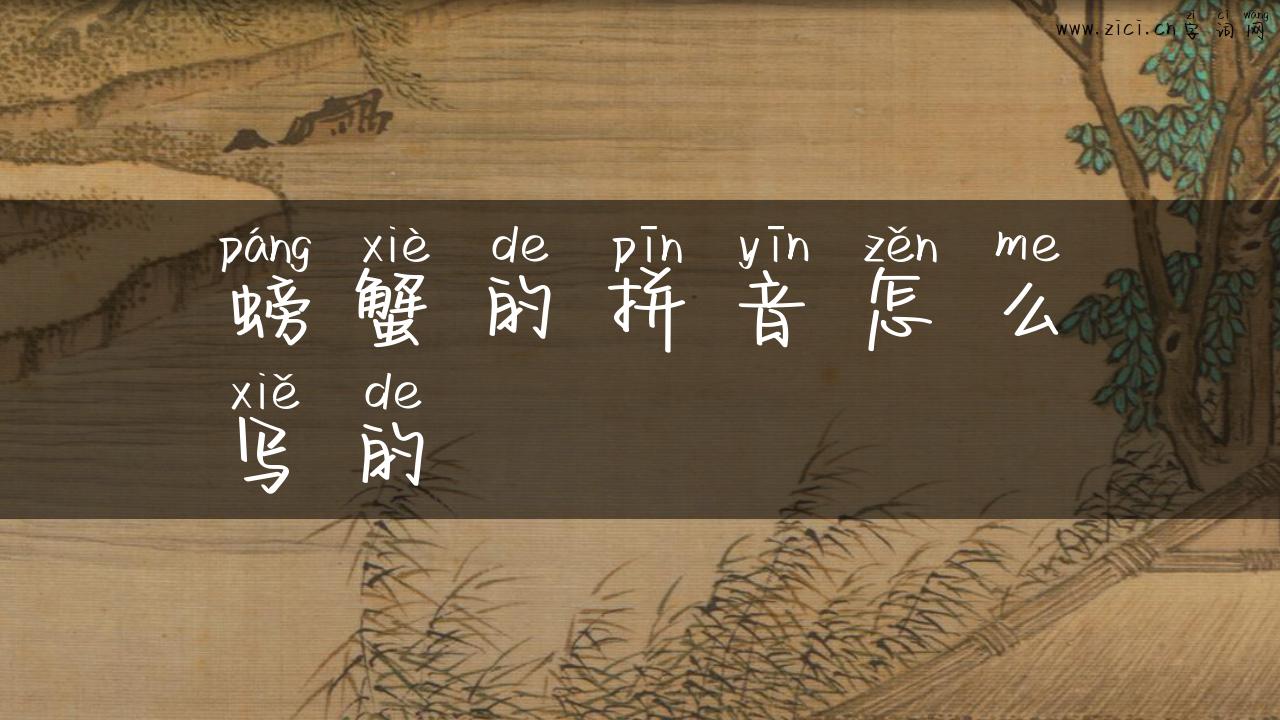 zì cí wǎng
www.zici.cn字词网
páng xiè de pīn yīn zěn me
螃蟹的拼音怎么
xiě de
写的